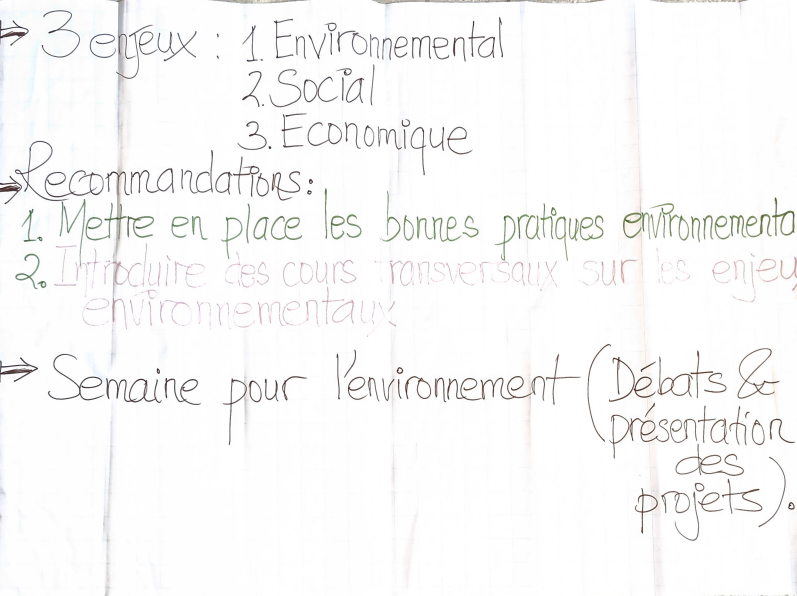 ⇒ 3 enjeux : 1. Environnemental
2. Social
3. Economique
⇒ Recommandations :
1. Mettre en place les bonnes pratiques environnementa
2. Introduire des cours transversaux sur les enjeu
environnementaux
⇒ Semaine pour l'environnement (Débats &
présentation
des
projets).